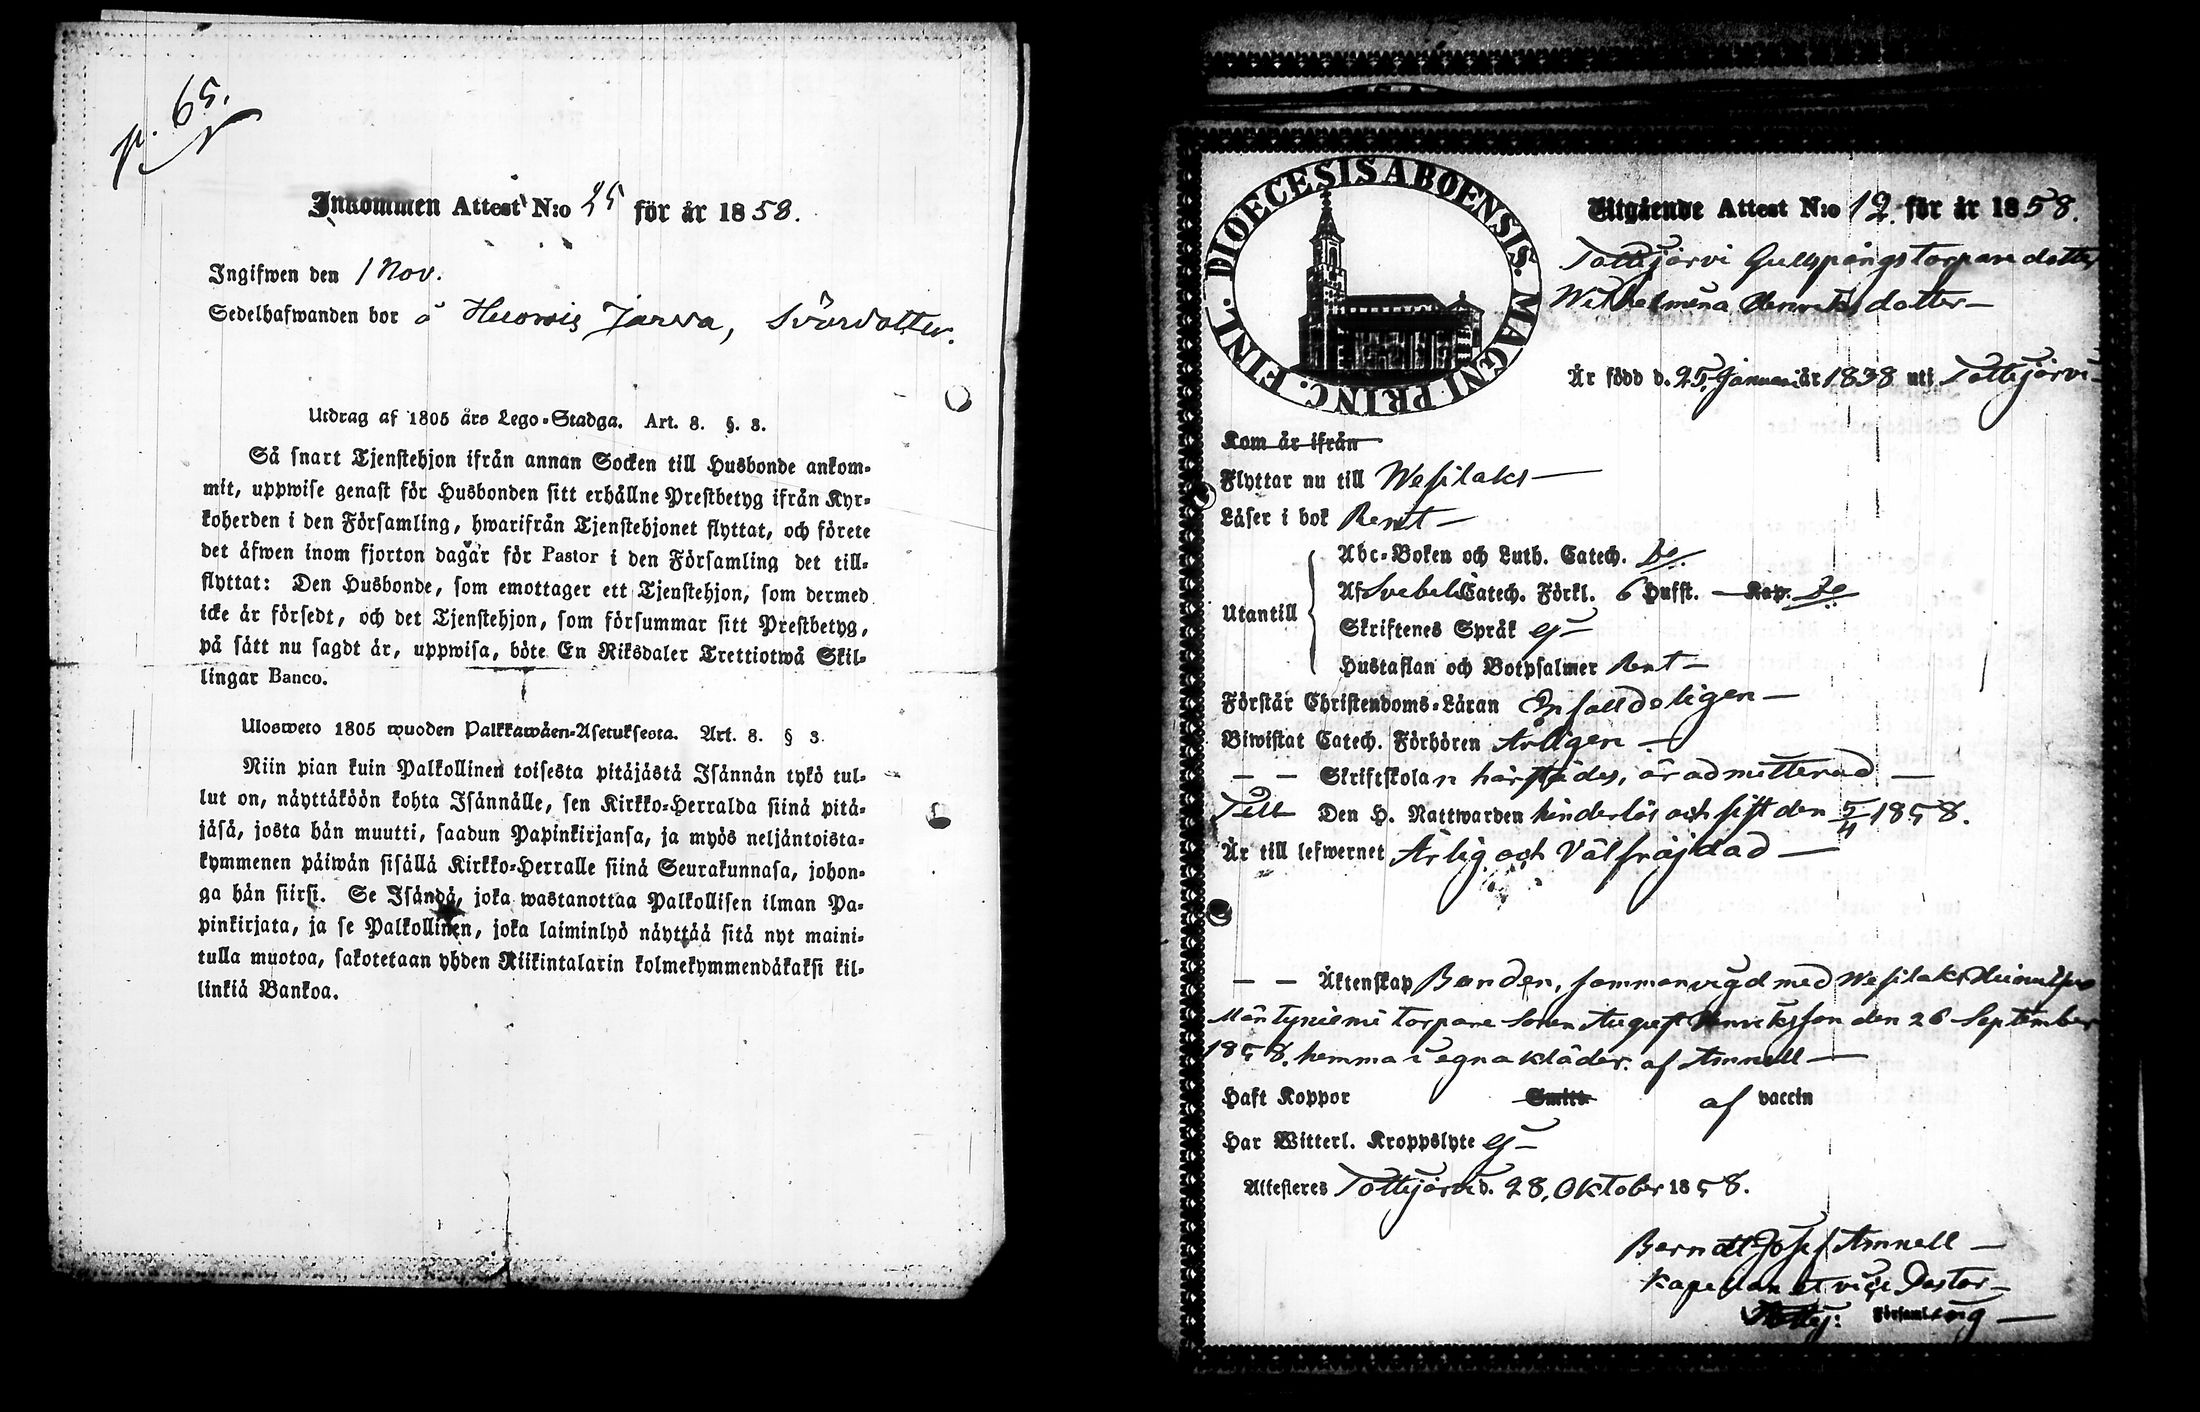 p. 65.
Inkommen Attest N:o 25 för år 1858.
Ingifwen den 1 Nov.
Sedelhafwanden bor å Jarva,
Utdrag af 1805 års Lego-Stadga. Art. 8. §. 3.
Så snart Tjenstehjon ifrån annan Socken till Husbonde ankom-
mit, uppwise genast för Husbonden sitt erhållne Prestbetyg ifrån Kyr-
koherden i den Församling, hwarifrån Tjenstehjonet flyttat, och förete
det äfwen inom fjorton dagar för Pastor i den Församling det till-
flyttat: Den Husbonde, som emottager ett Tjenstehjon, som dermed
icke är försedt, och det Tjenstehjon, som försummar sitt Prestbetyg,
på sätt nu sagdt är, uppwisa, böte En Riksdaler Trettiotwå Skil-
lingar Banco.
Ulosweto 1805 wuoden Palkkawäen-Asetuksesta. Art. 8. § 3.
Niin pian kuin Palkollinen toisesta pitäjästä Isännän tykö tul-
lut on, näyttäköön kohta Isännälle, sen Kirkko-Herralda siinä pitä-
jäsä, josta hän muutti, saadun Papinkirjansa, ja myös neljäntoista-
kymmenen päiwän sisällä Kirkko-Herralle siinä Seurakunnasa, johon-
ga hän siirsi. Se Isändä, joka wastanottaa Palkollisen ilman Pa-
pinkirjata, ja se Palkollinen, joka laiminlyö näyttää sitä nyt maini-
tulla muotoa, sakotetaan yhden Riikintalarin kolmekymmendäkaksi kil-
linkiä Bankoa.
DIOECESIS ABOENSIS. MAGNI PRINC. FINL.
Utgående Attest N:o 12. för år 1858.
Tottijärvi Gullspångs Torpare dotter
Wilhelmina Henriksdotter—
Är född d. 25 Januari år 1838 uti Tottijärvi—
Kom är ifrån
Flyttar nu till Wesilaks—
Läser i bok Rent—
Utantill
Abc-Boken och Luth. Catech. Do.
Af Svebelii Catech. Förkl. 6 Hufst. — Kap. Do
Skriftenes Språk ej—
Hustaflan och Botpsalmer Rent—
Förstår Christendoms-Läran Enfalldeligen—
Biwistat Catech. Förhören Årligen—
— — Skriftskolan härstädes, är admitterad —
Till Den H. Nattwarden hinderlös och sist den 5/4 1858.
Är till lefwernet Ärlig och Välfräjdad —
— — Äktenskap Bunden, sammanvigd med Wesilaks
Mäntyniemi Torpare Sonen August Henriksson den 26 September
1858. hemma i egna kläder. af Amnell —
Haft Koppor Smitt af vaccin
Har Witterl. Kroppslyte ej—
Attesteres Tottijärvi d. 28. Oktober 1858.
Berndt Josef Amnell —
Kapellan et vice Pastor—
Tottij: Församling —